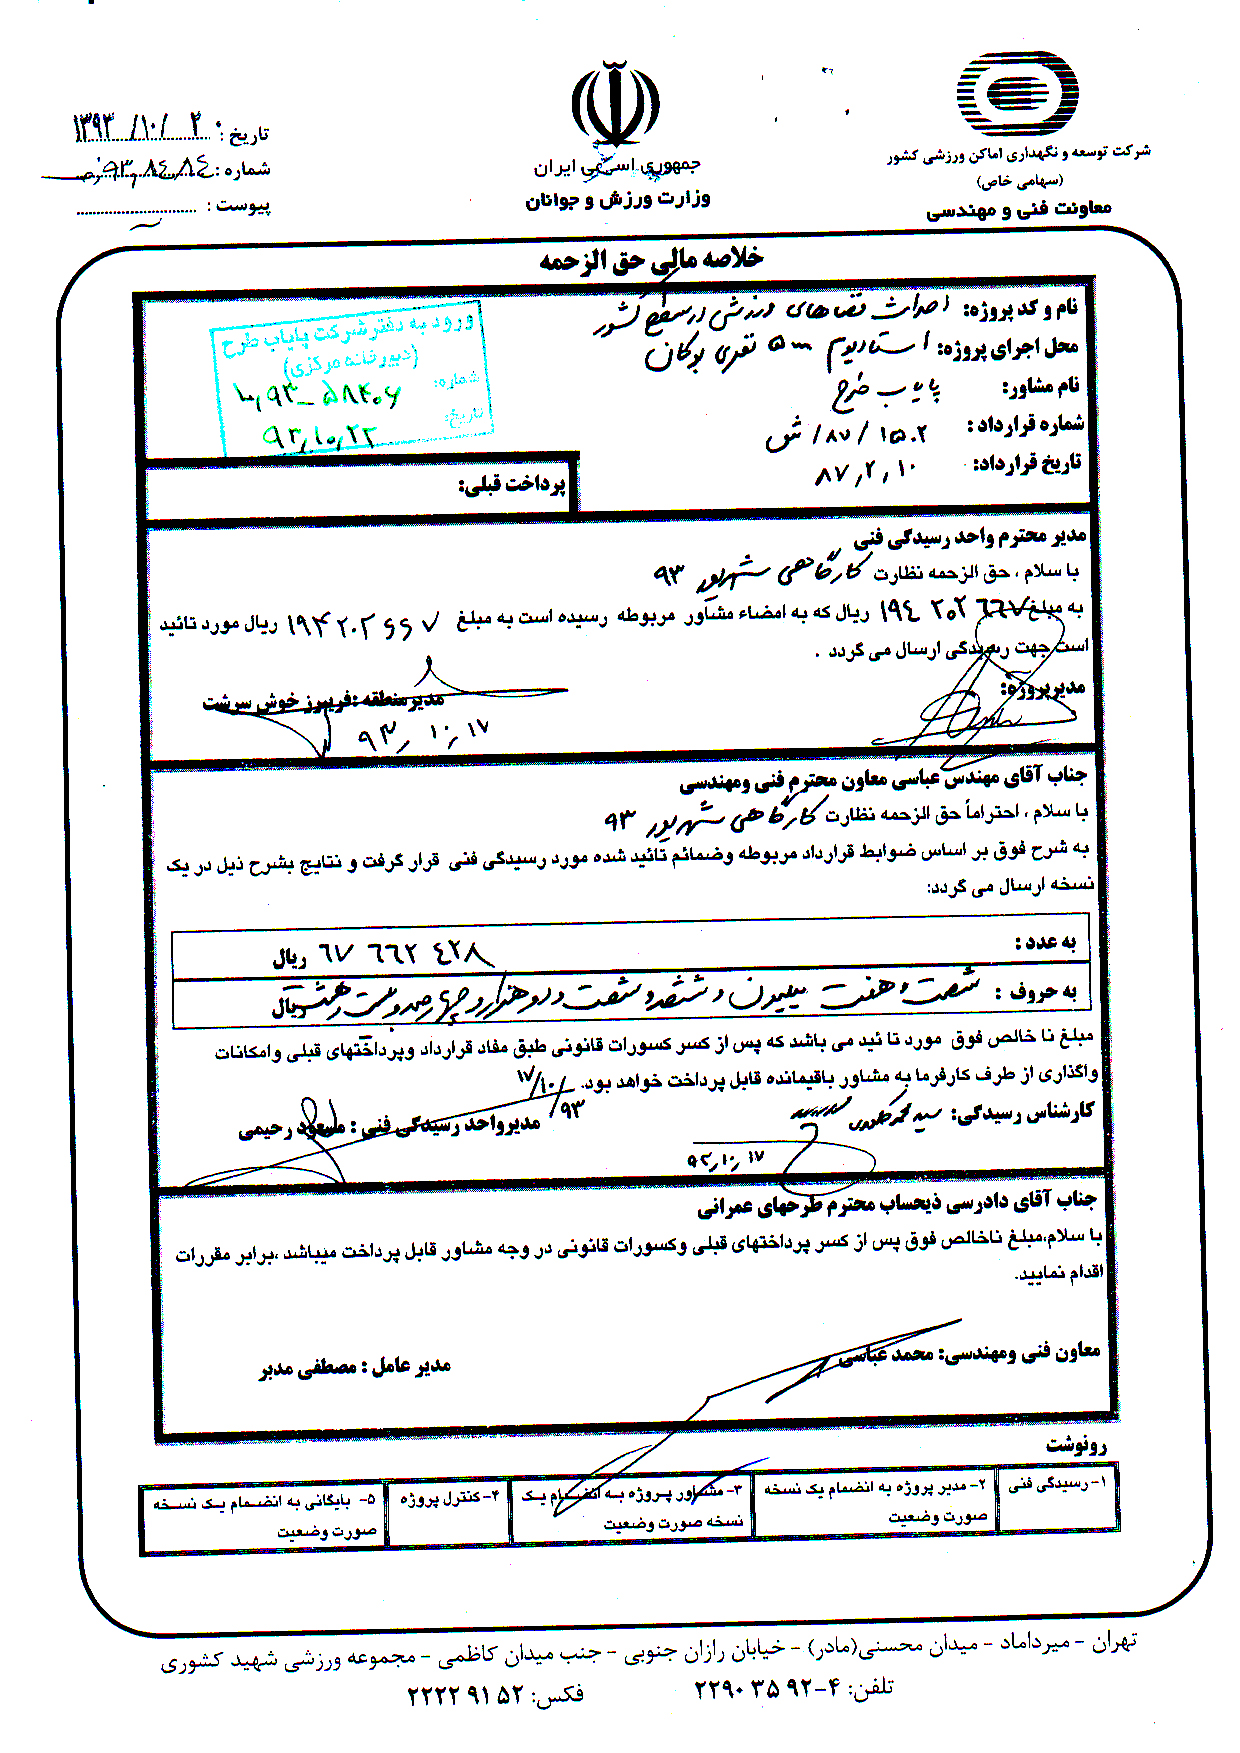 شرکت توسعه و نگهداری اماکن ورزشی کشور
(سهامی خاص)
معاونت فنی و مهندسی
جمهوری اسلامی ایران
وزارت ورزش و جوانان
تاریخ: ۱۳۹۳/۱۰/۲۰
شماره: ۹۳،۸۴،۸۴
پیوست:
خلاصه مالی حق الزحمه
نام و کد پروژه: احداث فضاهای ورزشی در سطح کشور
محل اجرای پروژه: استادیوم ۵۰۰۰ نفری بوکان
نام مشاور: پایاب طرح
شماره قرارداد: ۱۵۰۲/۸۷/ش
تاریخ قرارداد: ۸۷،۲،۱۰
ورود به دفتر شرکت پایاب طرح
(دبیرخانه مرکزی)
شماره: ۱۰،۹۳-۵۸۴۰۶
تاریخ: ۹۳،۱۰،۲۲
پرداخت قبلی:
مدیر محترم واحد رسیدگی فنی
با سلام ، حق الزحمه نظارت کارگاهی شهریور ۹۳
به مبلغ ۱۹۴ ۲۰۲ ۶۶۷ ریال که به امضاء مشاور مربوطه رسیده است به مبلغ ۱۹۴ ۲۰۲ ۶۶۷ ریال مورد تائید
است جهت رسیدگی ارسال می گردد .
مدیرپروژه:
مدیرمنطقه :فریبرز خوش سرشت
۹۳،۱۰،۱۷
جناب آقای مهندس عباسی معاون محترم فنی ومهندسی
با سلام ، احتراماً حق الزحمه نظارت کارگاهی شهریور ۹۳
به شرح فوق بر اساس ضوابط قرارداد مربوطه وضمائم تائید شده مورد رسیدگی فنی قرار گرفت و نتایج بشرح ذیل در یک
نسخه ارسال می گردد:
به عدد : ۶۷ ۶۶۲ ۴۲۸ ریال
به حروف : شصت و هفت میلیون و ششصد و شصت و دو هزار و چهارصد و بیست و هشت ریال
مبلغ نا خالص فوق مورد تا ئید می باشد که پس از کسر کسورات قانونی طبق مفاد قرارداد وپرداختهای قبلی وامکانات
واگذاری از طرف کارفرما به مشاور باقیمانده قابل پرداخت خواهد بود.
کارشناس رسیدگی:
۹۳،۱۰،۱۷
مدیرواحد رسیدگی فنی : مسعود رحیمی
۹۳/۱۰/۱۷
جناب آقای دادرسی ذیحساب محترم طرحهای عمرانی
با سلام،مبلغ ناخالص فوق پس از کسر پرداختهای قبلی وکسورات قانونی در وجه مشاور قابل پرداخت میباشد ،برابر مقررات
اقدام نمایید.
معاون فنی ومهندسی: محمد عباسی
مدیر عامل : مصطفی مدبر
رونوشت
۱- رسیدگی فنی
۲- مدیر پروژه به انضمام یک نسخه
صورت وضعیت
۳- مشاور پروژه به انضمام یک
نسخه صورت وضعیت
۴- کنترل پروژه
۵- بایگانی به انضمام یک نسخه
صورت وضعیت
تهران - میرداماد - میدان محسنی(مادر) - خیابان رازان جنوبی - جنب میدان کاظمی - مجموعه ورزشی شهید کشوری
تلفن: ۴-۹۲ ۳۵ ۲۲۹۰
فکس: ۵۲ ۹۱ ۲۲۲۲